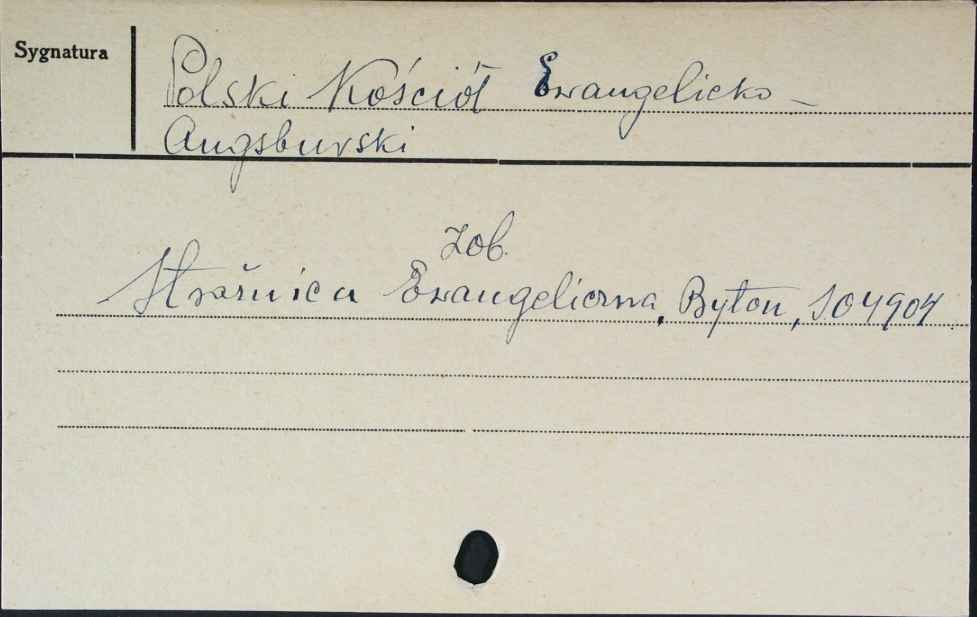 Sygnatura
Polski Kościół Ewangelicko-
Augsburski
Zob.
Strażnica Ewangeliczna, Bytom, 104904